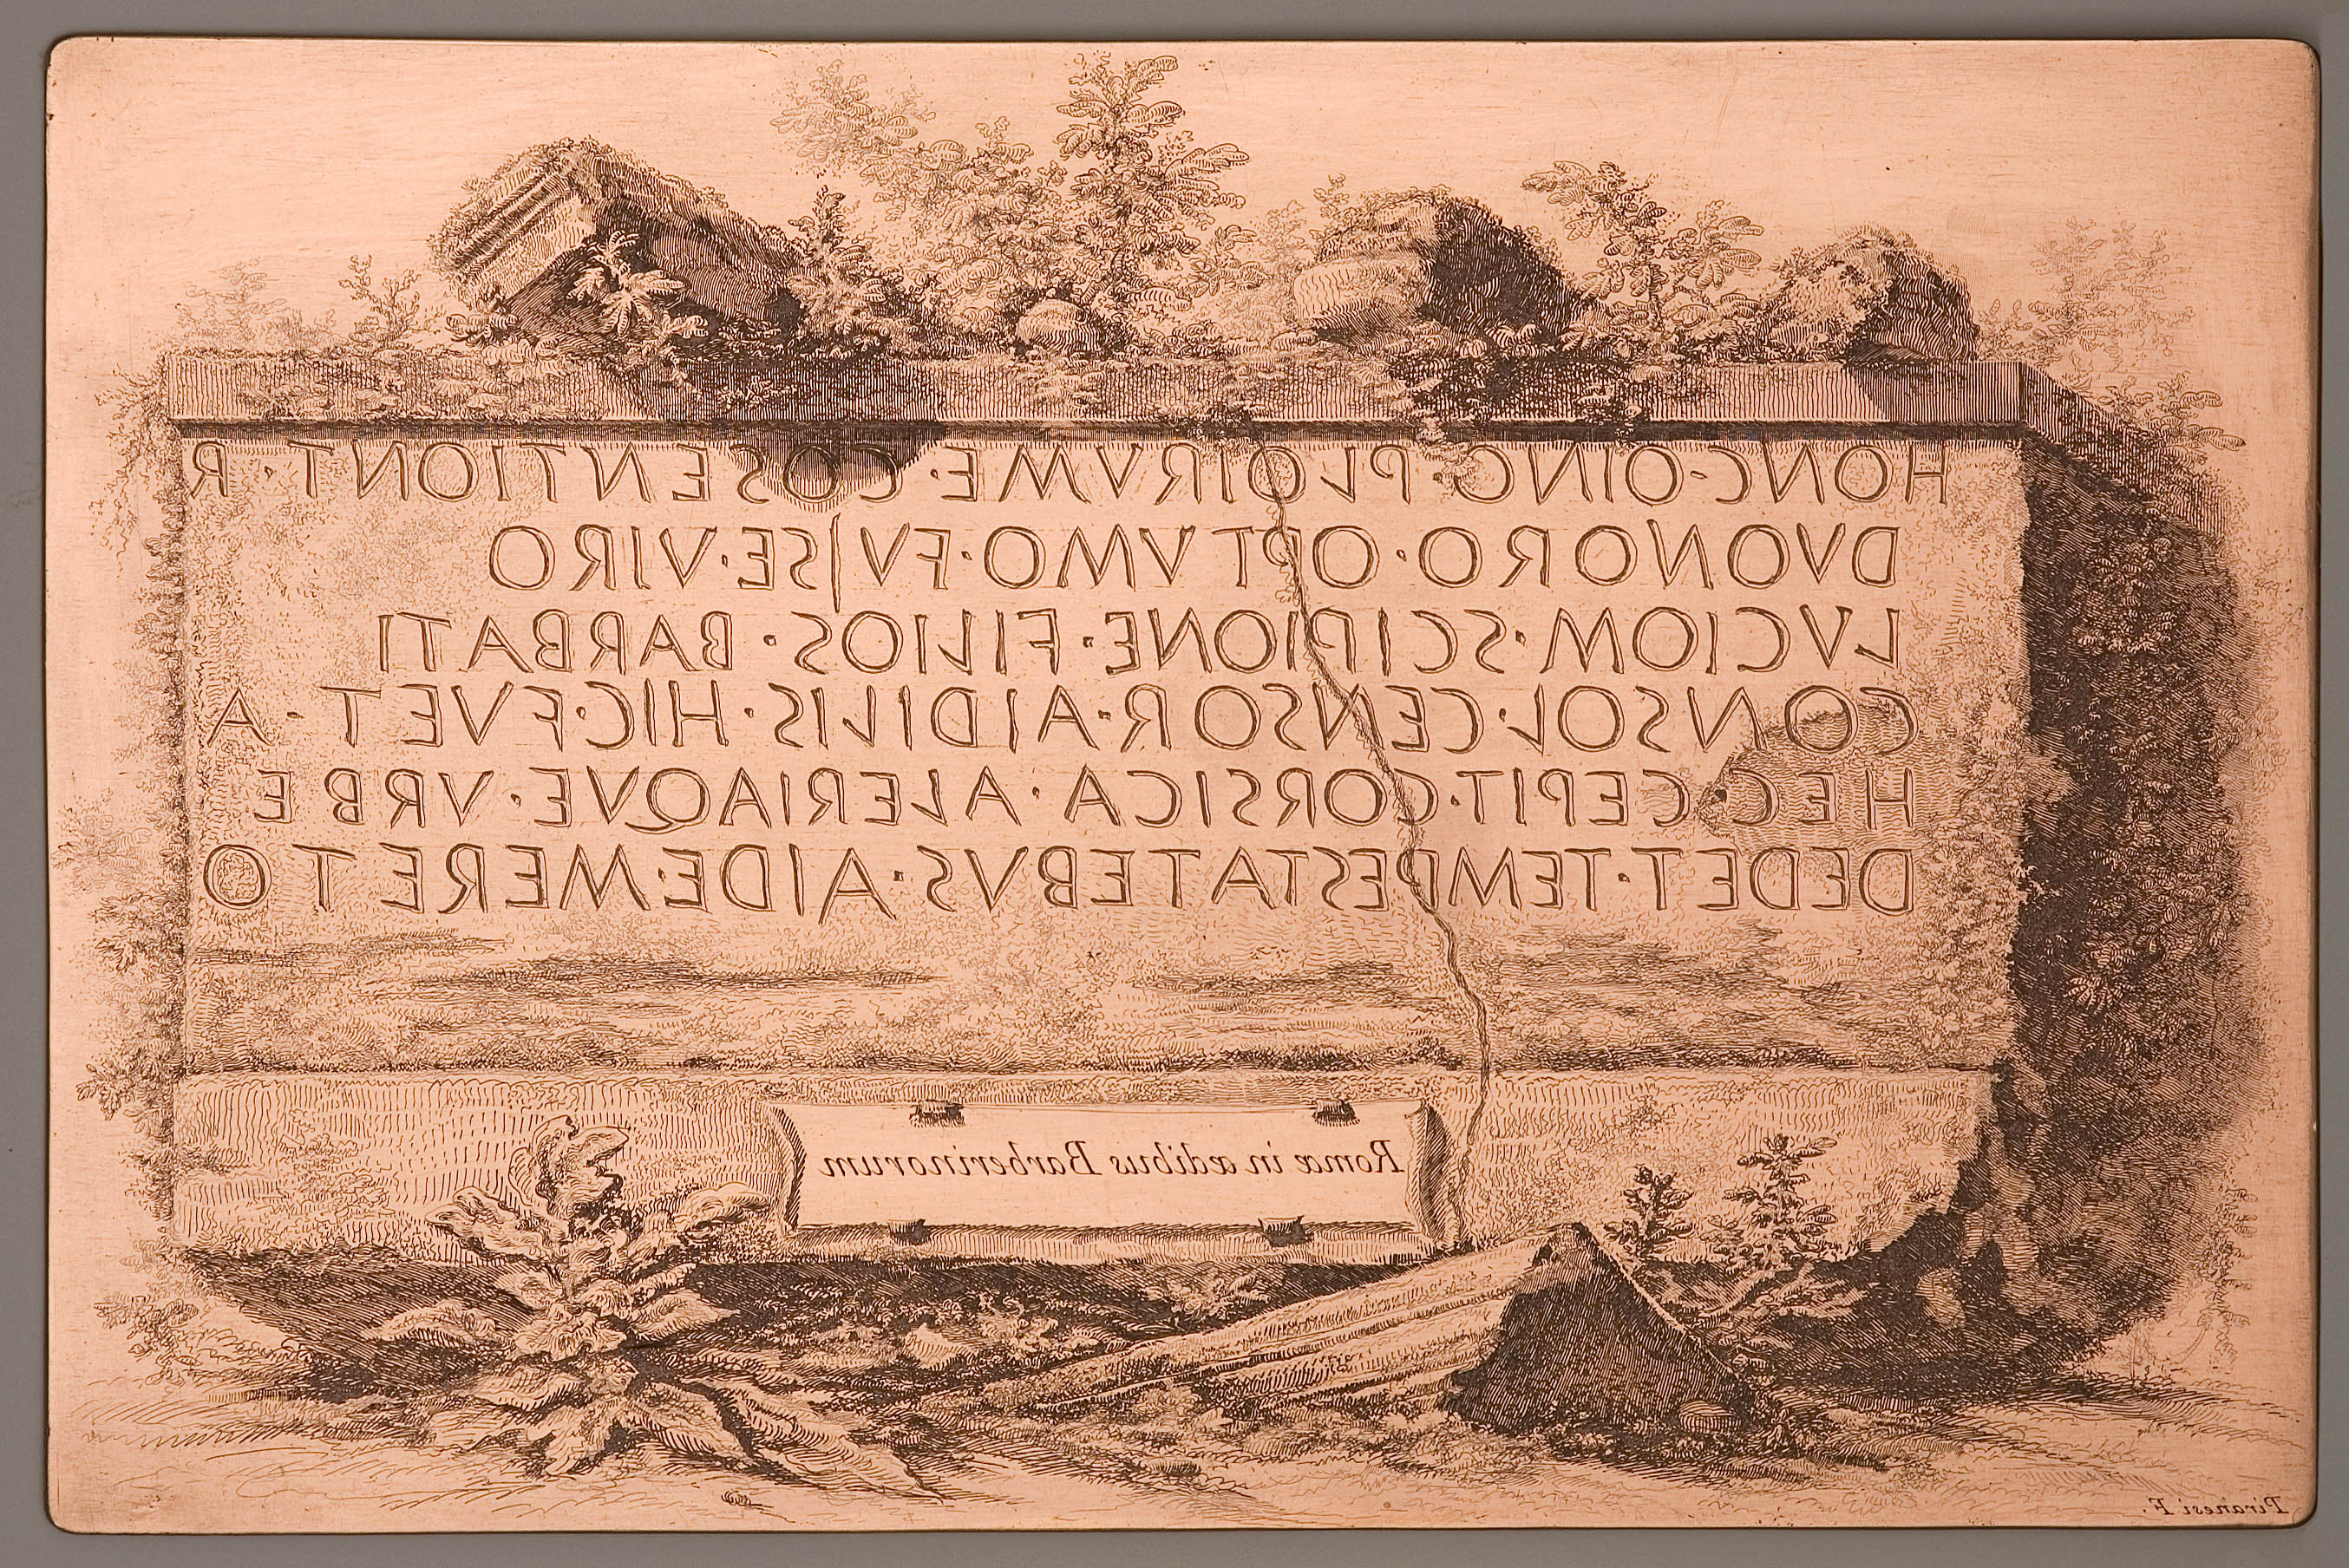 HONC·OINO·PLOIRVME·COSENTIONT·R
DVONORO·OPTVMO·FVISE·VIRO
LVCIOM·SCIPIONE·FILIOS·BARBATI
CONSOL·CENSOR·AIDILIS·HIC·FVET·A
HEC·CEPIT·CORSICA·ALERIAQVE·VRBE
DEDET·TEMPESTATEBVS·AIDE·MERETO
Romæ in ædibus Barberinorum
Piranesi F.